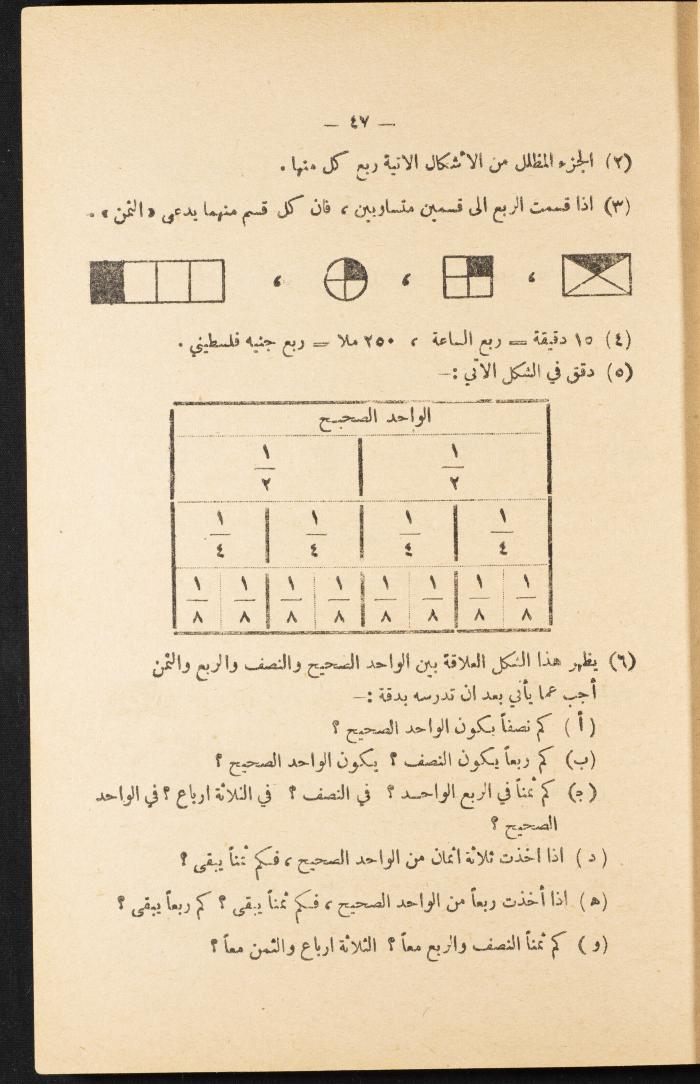 — ٤٧ —
(٢) الجزء المظلل من الأشكال الاتية ربع كل منها .
(٣) اذا قسمت الربع الى قسمين متساويين ، فان كل قسم منهما يدعى «الثمن» .
، ، ،
(٤) ١٥ دقيقة = ربع الساعة ، ٢٥٠ ملا = ربع جنيه فلسطيني .
(٥) دقق في الشكل الآتي :—
الواحد الصحيح
١/٢ ١/٢
١/٤ ١/٤ ١/٤ ١/٤
١/٨ ١/٨ ١/٨ ١/٨ ١/٨ ١/٨ ١/٨ ١/٨
(٦) يظهر هذا الشكل العلاقة بين الواحد الصحيح والنصف والربع والثمن
أجب عما يأتي بعد ان تدرسه بدقة :—
(أ) كم نصفاً يكون الواحد الصحيح ؟
(ب) كم ربعاً يكون النصف ؟ يكون الواحد الصحيح ؟
(ج) كم ثمناً في الربع الواحد ؟ في النصف ؟ في الثلاثة ارباع ؟ في الواحد
الصحيح ؟
(د) اذا اخذت ثلاثة اثمان من الواحد الصحيح ، فكم ثمناً يبقى ؟
(ه) اذا أخذت ربعاً من الواحد الصحيح ، فكم ثمناً يبقى ؟ كم ربعاً يبقى ؟
(و) كم ثمناً النصف والربع معاً ؟ الثلاثة ارباع والثمن معاً ؟